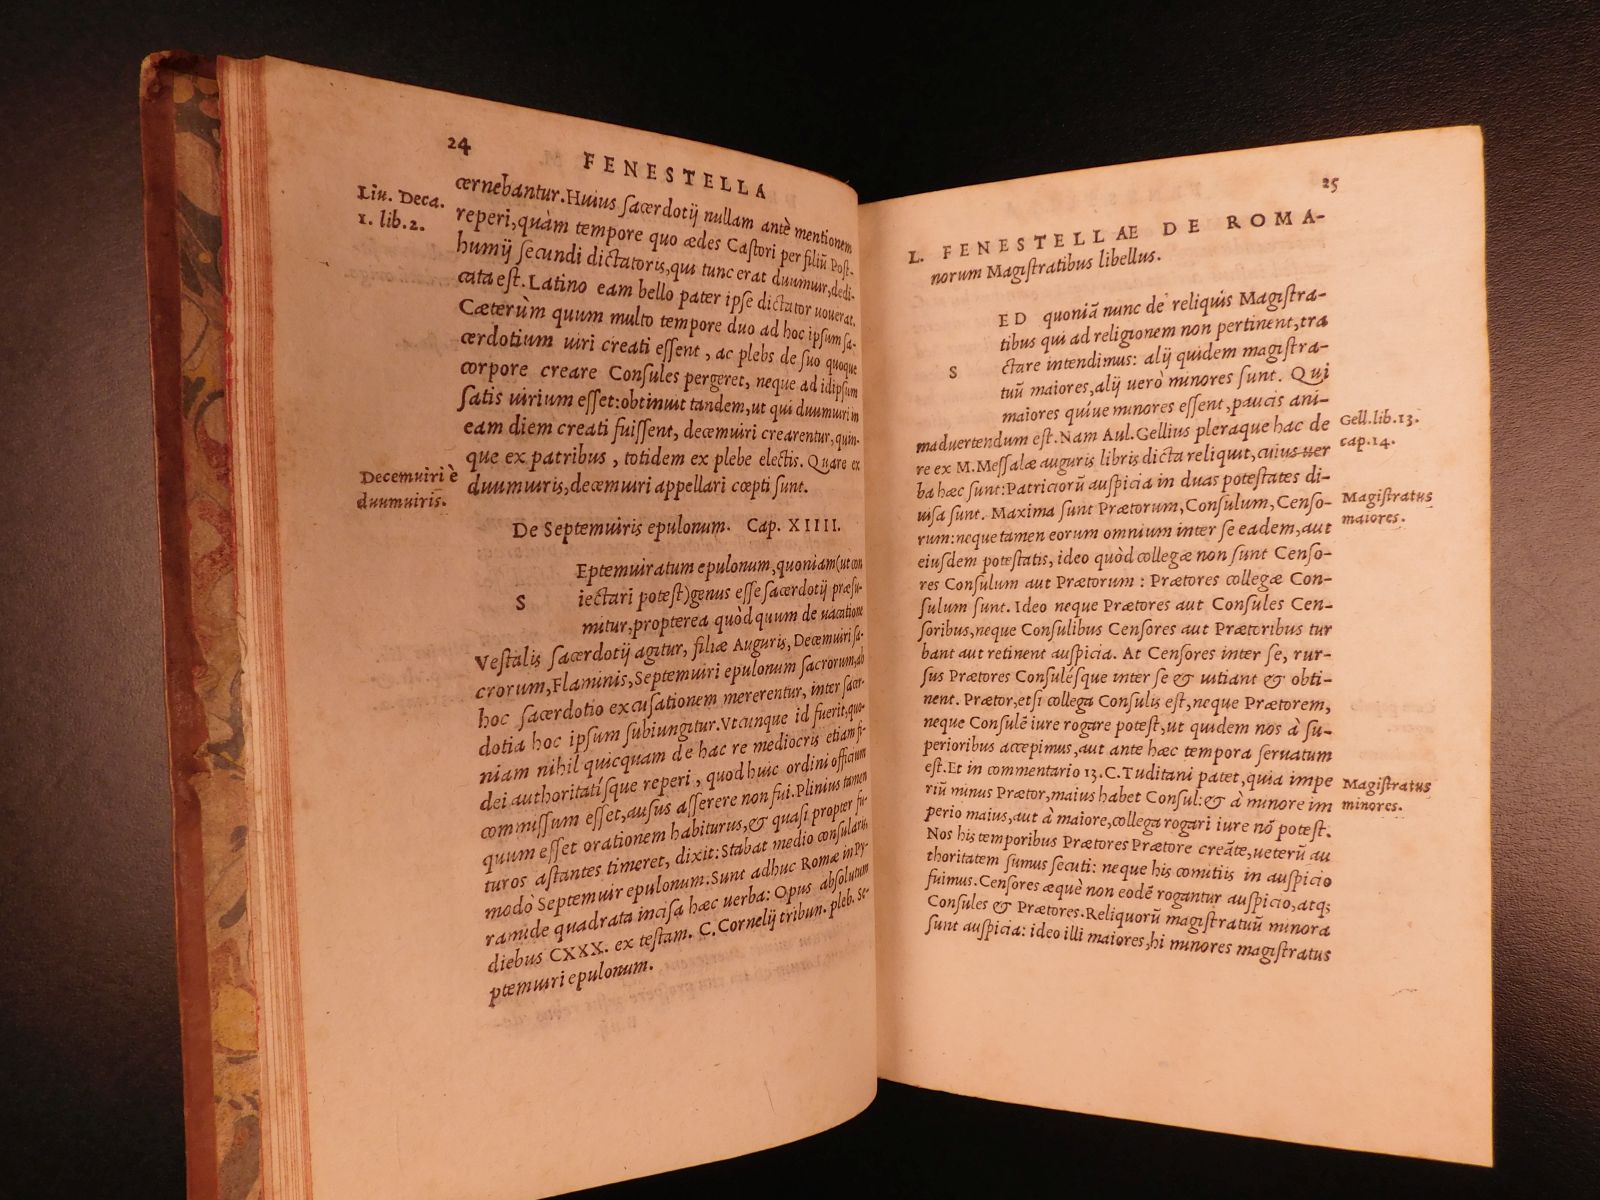 24
FENESTELLA
Liu. Deca.
1. lib.2.
cernebantur. Huius sacerdotij nullam antè mentionem
reperi, quàm tempore quo ædes Castori per filiũ Post-
humij secundi dictatoris, qui tunc erat duumuir, dedi-
cata est. Latino eam bello pater ipse dictator uouerat.
Cæterùm quum multo tempore duo ad hoc ipsum sa-
cerdotium uiri creati essent, ac plebs de suo quoque
corpore creare Consules pergeret, neque ad id ipsum
satis uirium esset: obtinuit tandem, ut qui duumuiri in
eam diem creati fuissent, decemuiri crearentur, quin-
que ex patribus, totidem ex plebe electis. Quare ex
duumuiris, decemuiri appellari cœpti sunt.
Decemuiri è
duumuiris.
De Septemuiris epulonum. Cap. XIIII.
S
Eptemuiratum epulonum, quoniam (ut con
iectari potest) genus esse sacerdotij præsu-
mitur, propterea quòd quum de uacatione
Vestalis sacerdotij agitur, filiæ Auguris, Decemuiri sa-
crorum, Flaminis, Septemuiri epulonum sacrorum, ab
hoc sacerdotio excusationem mererentur, inter sacer-
dotia hoc ipsum subiungitur. Vtcunque id fuerit, quo-
niam nihil quicquam de hac re mediocris etiam fi-
dei authoritatísque reperi, quod huic ordini officium
commissum esset, ausus asserere non fui. Plinius tamen
quum esset orationem habiturus, & quasi propter fu-
turos astantes timeret, dixit: Stabat medio consularis,
modò Septemuir epulonum. Sunt adhuc Romæ in Py-
ramide quadrata incisa hæc uerba: Opus absolutum
diebus CXXX. ex testam. C. Cornelij tribun. pleb. Se-
ptemuiri epulonum.
25
L. FENESTELLAE DE ROMA-
norum Magistratibus libellus.
S
ED quoniã nunc de reliquis Magistra-
tibus qui ad religionem non pertinent, tra
ctare intendimus: alij quidem magistra-
tuũ maiores, alij uerò minores sunt. Qui
maiores quiue minores essent, paucis ani-
maduertendum est. Nam Aul. Gellius pleraque hac de
re ex M. Messalæ auguris libris dicta reliquit, cuius uer
ba hæc sunt: Patriciorũ auspicia in duas potestates di-
uisa sunt. Maxima sunt Prætorum, Consulum, Censo-
rum: neque tamen eorum omnium inter se eadem, aut
eiusdem potestatis, ideo quòd collegæ non sunt Censo-
res Consulum aut Prætorum: Prætores collegæ Con-
sulum sunt. Ideo neque Prætores aut Consules Cen-
soribus, neque Consulibus Censores aut Prætoribus tur
bant aut retinent auspicia. At Censores inter se, rur-
sus Prætores Consulésque inter se & uitiant & obti-
nent. Prætor, etsi collega Consulis est, neque Prætorem,
neque Consulẽ iure rogare potest, ut quidem nos à su-
perioribus accepimus, aut ante hæc tempora seruatum
est. Et in commentario 13. C. Tuditani patet, quia impe
riũ minus Prætor, maius habet Consul: & à minore im
perio maius, aut à maiore, collega rogari iure nõ potest.
Nos his temporibus Prætores Prætore creãte, ueterũ au
thoritatem sumus secuti: neque his comitiis in auspicio
fuimus. Censores æquè non eodẽ rogantur auspicio, atq;
Consules & Prætores. Reliquorũ magistratuũ minora
sunt auspicia: ideo illi maiores, hi minores magistratus
Gell. lib. 13.
cap. 14.
Magistratus
maiores.
Magistratus
minores.